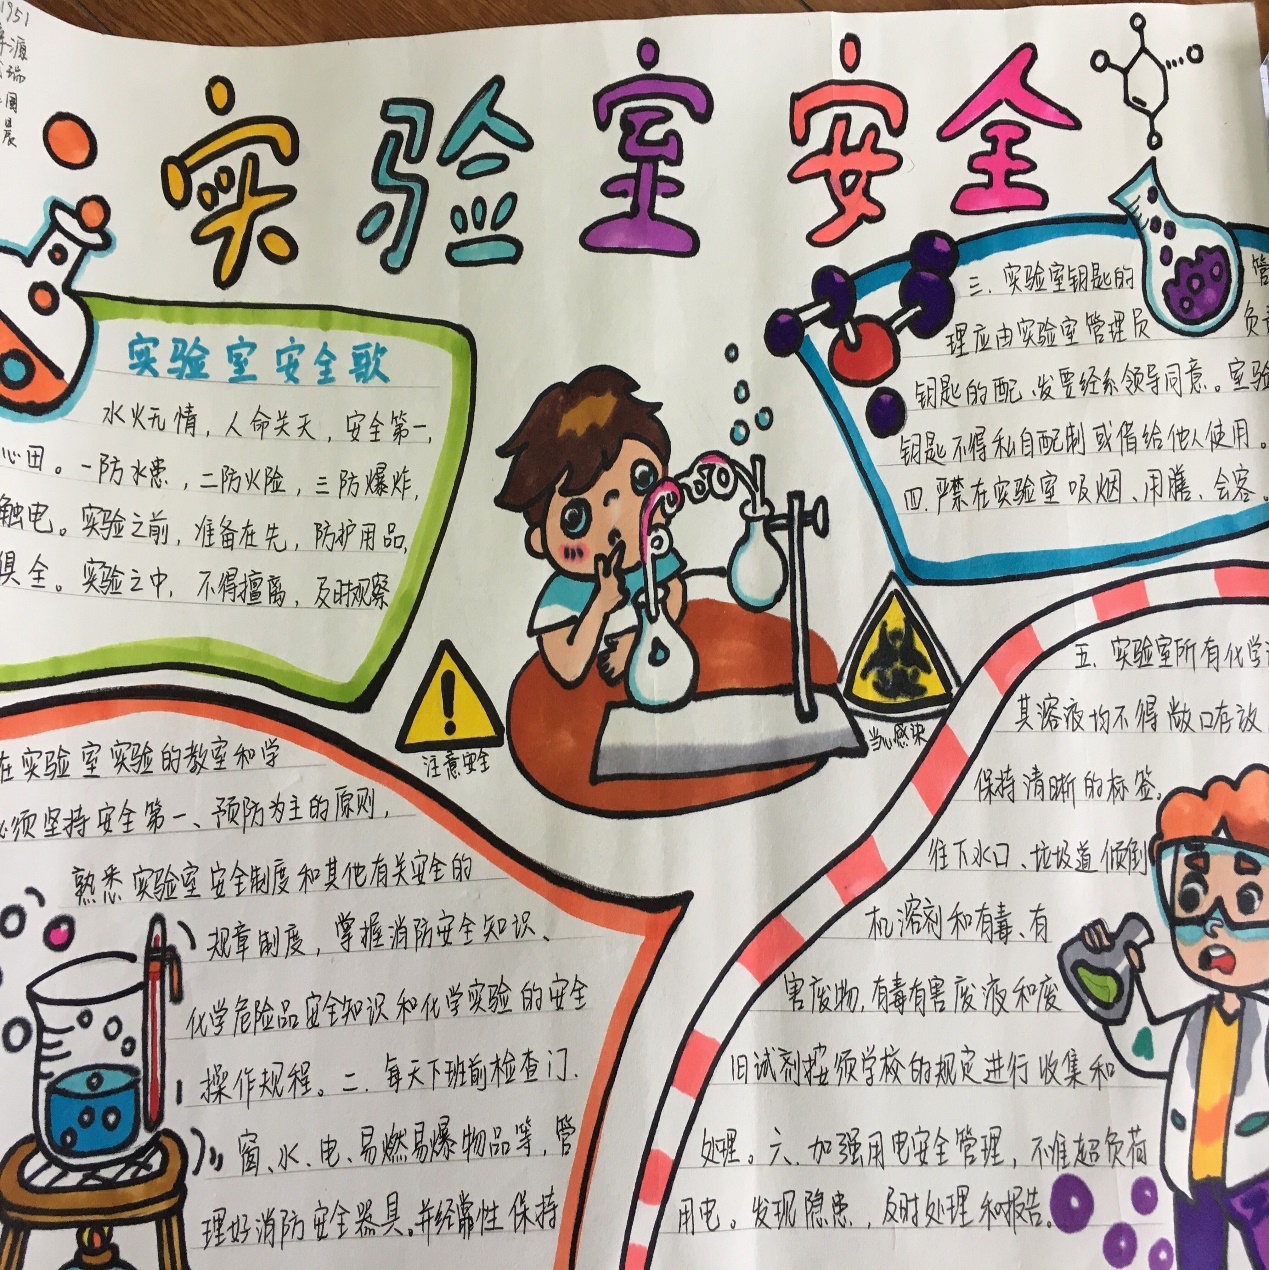 1951
源
瑞
国
展
实验室安全
实验室安全歌
水火无情，人命关天，安全第一，
心田。一防水患，二防火险，三防爆炸，
触电。实验之前，准备在先，防护用品，
俱全。实验之中，不得擅离，及时观察
三、实验室钥匙的管
理应由实验室管理员负责
钥匙的配、发要经系领导同意。室验
钥匙不得私自配制或借给他人使用。
四、严禁在实验室吸烟、用膳、会客。
注意安全
当心感染
在实验室实验的教室和学
必须坚持安全第一、预防为主的原则，
熟悉实验室安全制度和其他有关安全的
规章制度，掌握消防安全知识、
化学危险品安全知识和化学实验的安全
操作规程。二、每天下班前检查门、
窗、水、电、易燃易爆物品等，管
理好消防安全器具。并经常性保持
五、实验室所有化学
其溶液均不得敞口存放
保持清晰的标签。
往下水口、垃圾道倾倒
机溶剂和有毒、有
害废物，有毒有害废液和废
旧试剂按须学校的规定进行收集和
处理。六、加强用电安全管理，不准超负荷
用电。发现隐患，及时处理和报告。